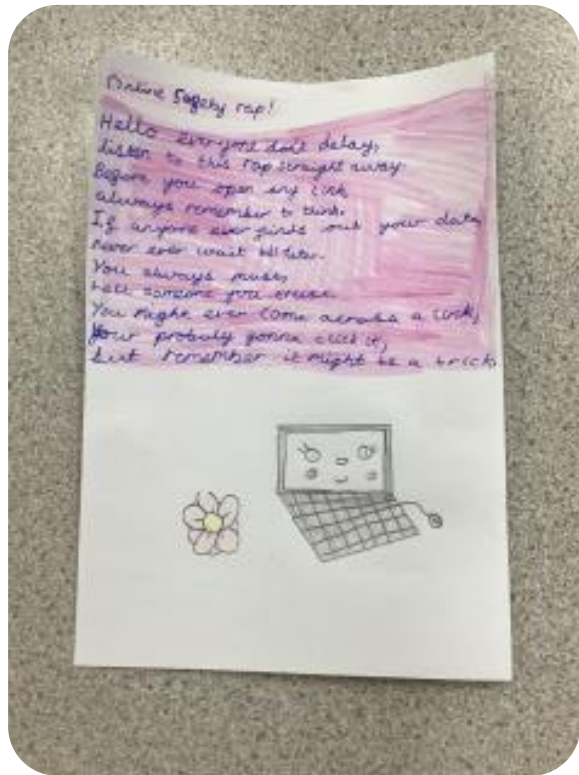 Online Safety rap!
Hello everyone don't delay,
listen to this rap straight away.
Before you open any link
always remember to think.
If anyone ever finds out your data,
never ever wait till later.
You always must,
tell someone you trust.
You might even come across a link,
Your probaly gonna click it,
but remember it might be a trick.